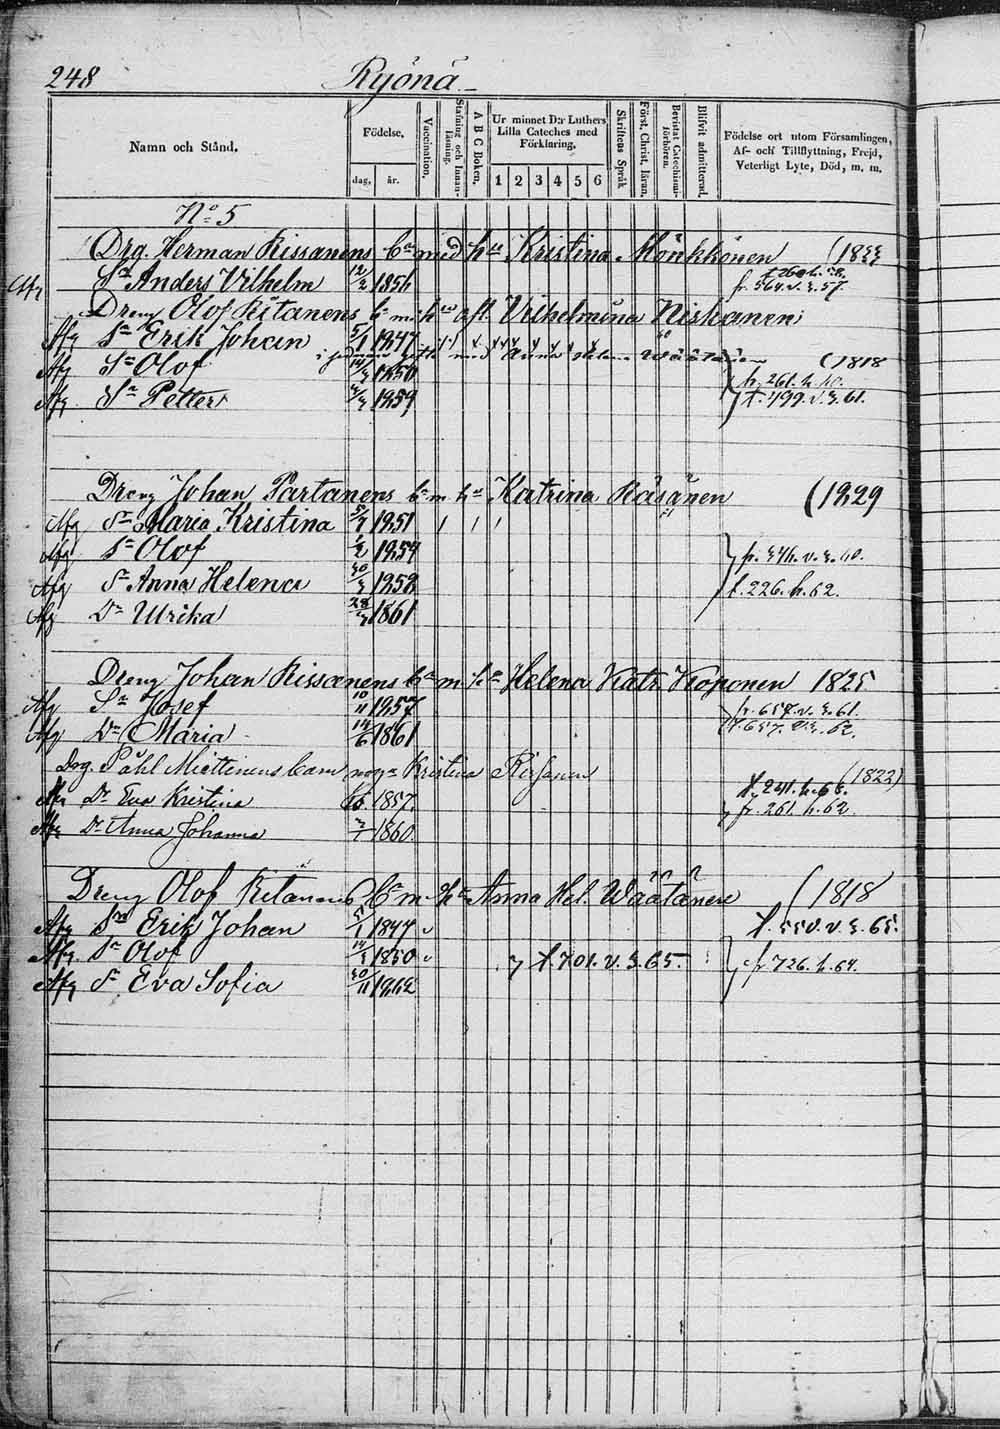 248 Ryönä
Namn och Stånd.
Födelse,
dag, år.
Vaccination.
Stafning och Innanläsning.
A B C Boken.
Ur minnet D:r Luthers Lilla Cateches med Förklaring,
1 2 3 4 5 6
Skriftens Språk
Först. Christ. läran.
Bevistat Catechismiförhören.
Blifvit admitterad.
Födelse ort utom Församlingen, Af- och Tillflyttning, Frejd, Veterligt Lyte, Död, m. m.
No 5
Drg. Herman Rissanens bn med hu Kristina Mönkkönen (1833
Afg Sn Anders Vilhelm 12/2 1856 fr. 564. v. 3. 57.
Dreng Olof Ritanens bn m. hu afl. Vilhelmina Niskanen
Afg Sn Erik Johan 5/1 1847
i gifte med Anna Helena Väätäinen (1818
Afg Sn Olof 14/3 1850 fr. 261. h. 10.
Afg Sn Petter 1859 t. 499. v. 3. 61.
Dreng Johan Partanens bn m hu Katrina Räsänen (1829
Afg Dr Maria Kristina 1851
Afg Sn Olof 1854 fr. 346. v. 3. 60.
Afg Dr Anna Helena 30/3 1858 t. 226. h. 62.
Afg Dr Ulrika 28/3 1861
Dreng Johan Rissanens bn m hu Helena Katr. Koponen 1825
Afg Sn Josef 10/11 1857 fr. 657. v. 3. 61.
Afg Dr Maria 14/6 1861 t. 657. v. 3. 62.
Drg. Påhl Miettinens barn med Kristina Rissanen (1822)
Afg Dr Eva Kristina 1857 t. 241. h. 66.
Afg Dr Anna Johanna 1860. fr. 261. h. 62
Dreng Olof Ritanens bn m hu Anna Hel. Wäätänen (1818
Afg Sn Erik Johan 5/1 1847 t. 550. v. 3. 65.
Afg Sn Olof 14/3 1850 t. 701. v. 3. 65. fr 726. h. 64.
Afg Dr Eva Sofia 30/11 1862